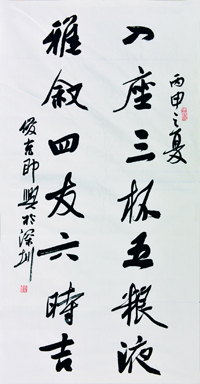 丙申之夏
入座三杯五粮液
雅叙四友六時吉
俊吉師興於深圳